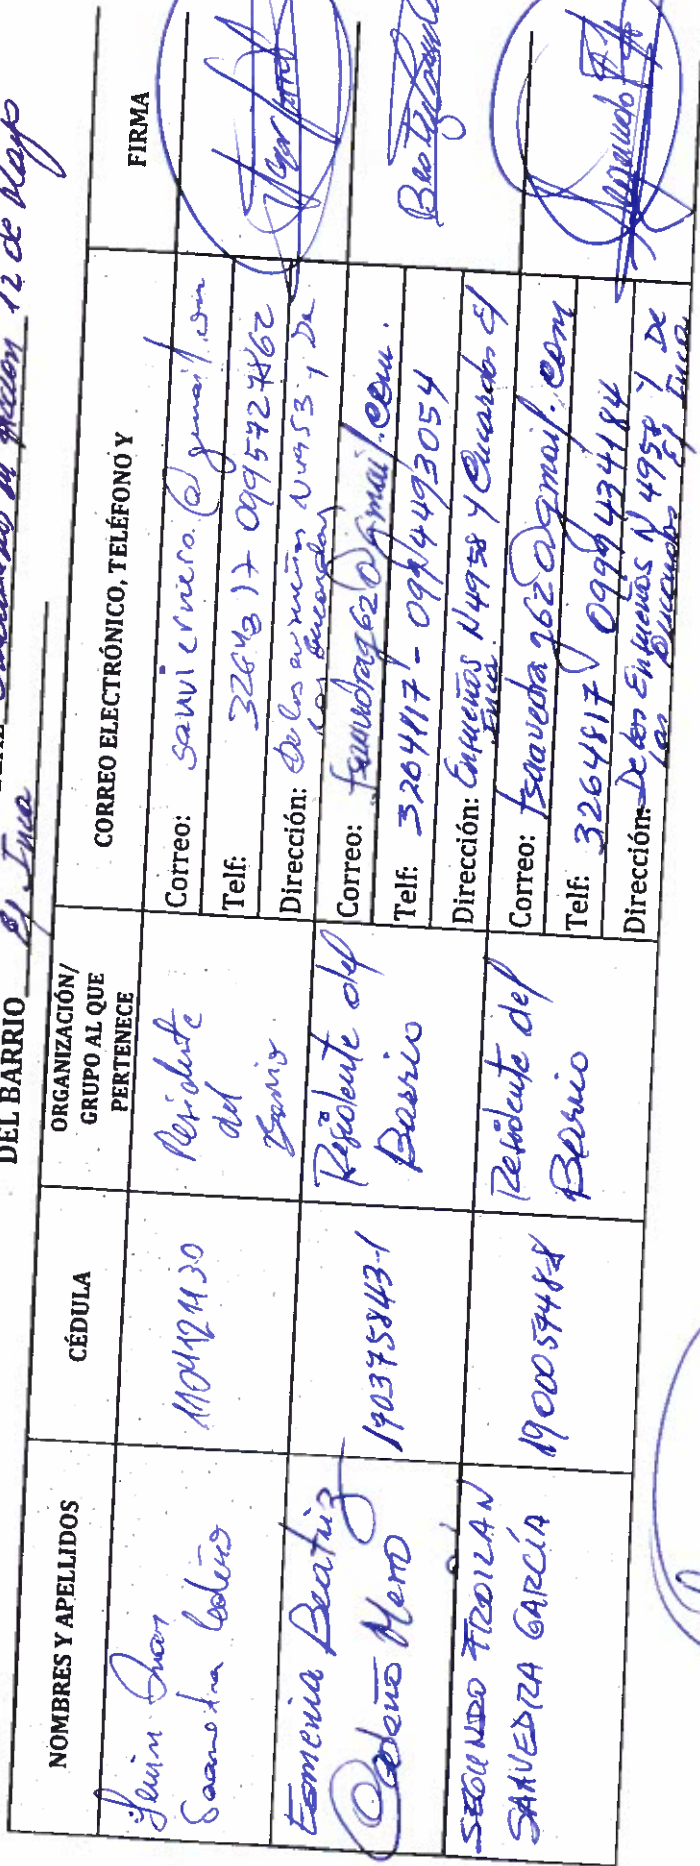 de acción 12 de Mayo
DEL BARRIO El Inca
NOMBRES Y APELLIDOS
CÉDULA
ORGANIZACIÓN/
GRUPO AL QUE
PERTENECE
CORREO ELECTRÓNICO, TELÉFONO Y
FIRMA
Saavedra Cedeño
1104121130
Residente
del
Barrio
Correo: @gmail.com
Telf: 3264817 0995727862
Dirección: De los N4953 y De
Los Cucardas
Esmeria Beatriz
Cedeño Mero
170375843-1
Residente del
Barrio
Correo: fsaavedrag62@gmail.com.
Telf: 3264817 - 0994493054
Dirección: Ensueños N4958 y Cucardas El
Inca
SEGUNDO FROILAN
SAAVEDRA GARCÍA
190005948-8
Residente del
Barrio
Correo: fsaavedrag62@gmail.com
Telf: 3264817 0999434184
Dirección: De los Ensueños N4958 y De
las Cucardas El Inca